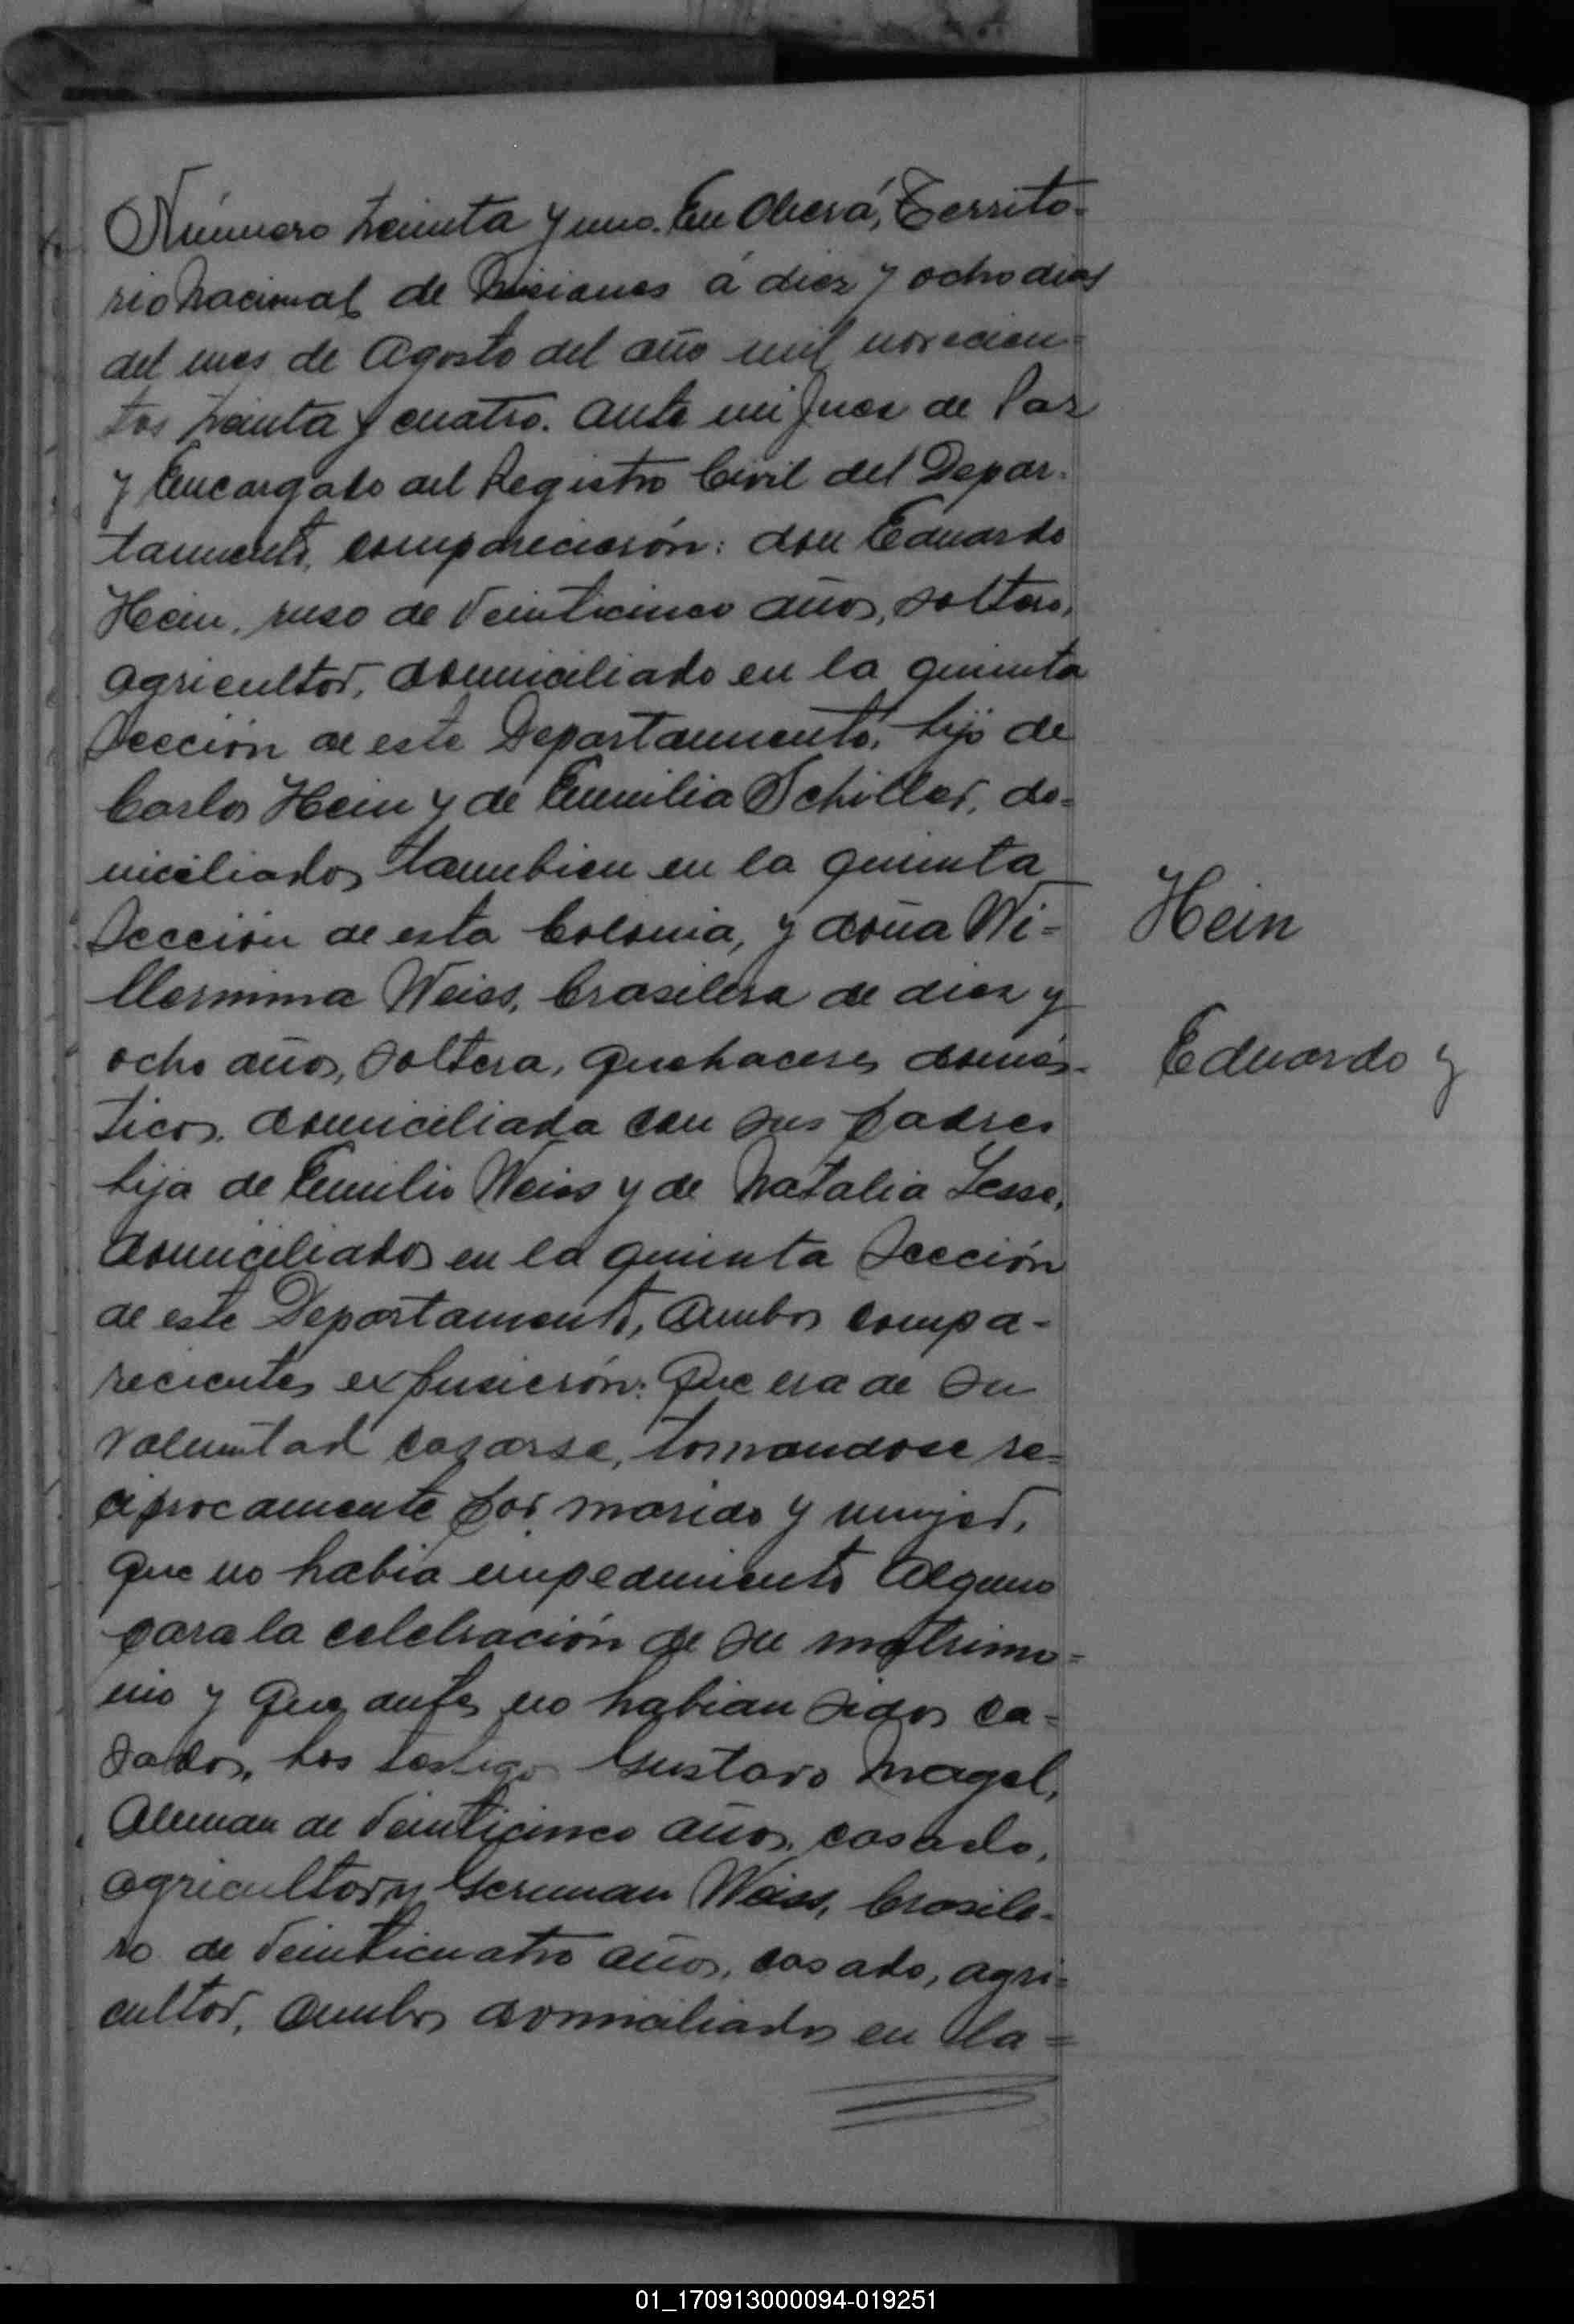 Número treinta y uno. En Oberá, Territo-
rio Nacional de Misiones á diez y ocho dias
del mes de Agosto del año mil novecien-
tos treinta y cuatro. Ante mi Juez de Paz
y Encargado del Registro Civil del Depar-
tamento, comparecieron: don Eduardo
Hein, ruso de veinticinco años, soltero,
agricultor, domiciliado en la quinta
Sección de este Departamento, hijo de
Carlos Hein y de Emilia Schiller, do-
miciliados tambien en la quinta
Sección de esta Colonia, y doña Wi=
llermina Weiss, brasilera de diez y
ocho años, soltera, quehaceres domés-
ticos, domiciliada con sus padres
hija de Emilio Weiss y de Natalia Lesse,
domiciliados en la quinta Sección
de este Departamento, Ambos compa-
recientes expusieron: Que era de su
voluntad casarse, tomandose re=
ciprocamente por marido y mujer,
que no habia impedimento alguno
para la celebración de su matrimo=
nio y que antes no habian sidos ca=
sados, los testigos Gustavo Nagel,
Aleman de veinticinco años, casado,
agricultor y German Weiss, brasile-
ro de veinticuatro años, casado, agri=
cultor, ambos domiciliados en la=
Hein
Eduardo y
01_170913000094-019251